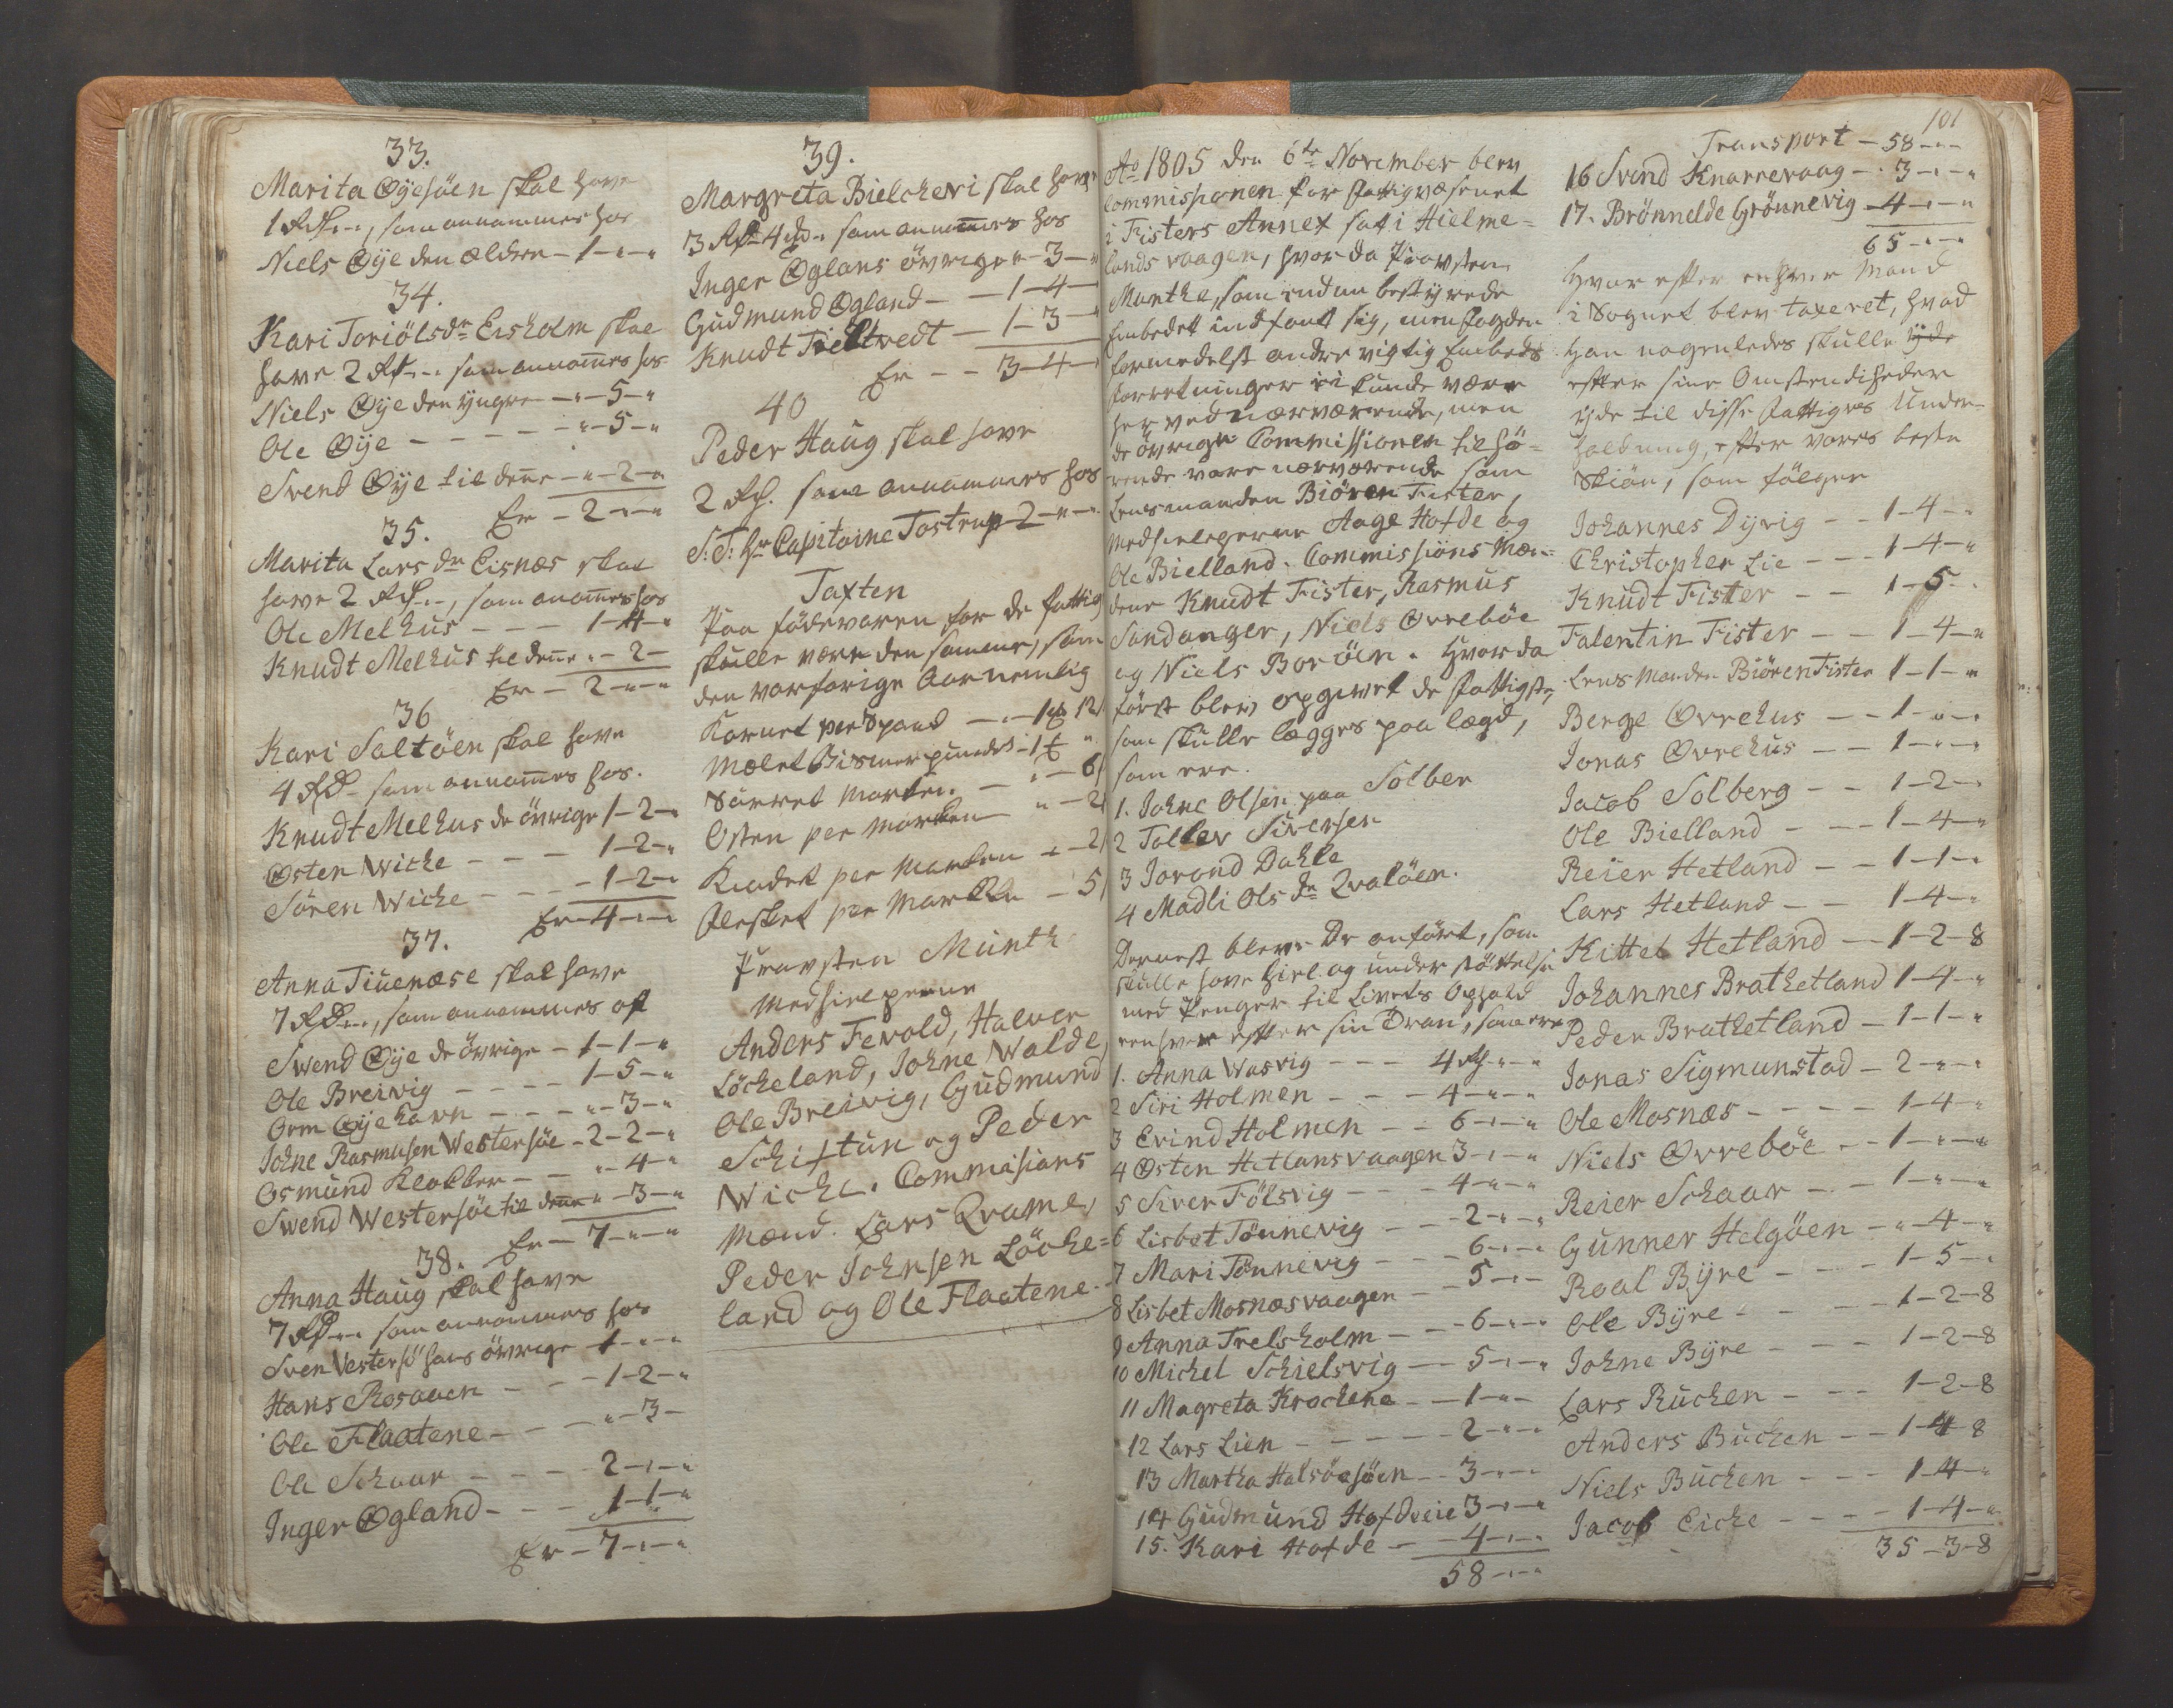 33.
Marita Øÿesöen skal have
1 Rd"-", som annammes hos
Niels Øÿe den ældre - 1-"-"
34.
Kari Toriölsdr Eisholm skal
have 2 Rd"-" som annam̄es hos
Niels Øÿe den ÿngre - "-5-"
Ole Øÿe - - - - "-5-"
Svend Øÿe til den̄e - "-2-"
Er - 2-"-"
35.
Marita Larsdr Eisnæs skal
have 2 Rd"-", som anam̄es hos
Ole Melhus - - - 1-4-"
Knudt Melhus til den̄e "-2-
Er - 2-"-"
36
Kari Saltöen skal have
4 Rd- som annam̄es hos.
Knudt Melhus de övrige 1-2-"
Østen Wiche - - - 1-2-"
Sören Wiche - - - 1-2-"
Er - 4-"-"
37.
Anna Tiuenæse skal have
7 Rd"-", som annammes af
Swend Øÿe de övrige - 1-1-"
Ole Breivig - - - - 1-5-"
Orm Øÿehavn - - - "-3-"
Johne Rasmusen Westersöe - 2-2-"
Osmund Klokker - - "-4-"
Swend Westersöe til den̄e "-3-"
Er - 7-"-"
38.
Anna Haug skal have
7 Rd"-" som annammes hos
Sven Vestersö hans övrige - 1-"-"
Hans Rosaaen - - - 1-2-"
Ole Flaatene - - - "-3-
Ole Schaar - - - - 2-"-"
Inger Øgland - - - 1-1-"
Er - 7-"-"
39.
Margreta Bielcheri skal have
3 Rd 4 " som annam̄es hos
Inger Øglans övrige "-3-"
Gudmund Øgland - - 1-4-
Knudt Tieltvedt - 1-3-"
Er - - 3-4-
40
Peder Haug skal have
2 Rd. som annammes hos
S: T: Hr Capitaine Tostrup 2-"-"
Taxten
Paa födevaren for de fattige
skulle være den samme, som
den varforige Aar nemlig
Kornet per Spand - - 1 12
Mælet Bismerpundet - 1 "
Smörret Marken - - " - 6
Osten per Marken - " - 2
Kiødet per Marken - " - 2
Flesket per Marken - 5
Provsten Munthe
Medhielperne
Anders Fevold, Halvor
Löcheland, Johne Walde,
Ole Breivig, Gudmund
Schiftun og Peder
Wiche. Commisions
Mænd. Lars Qvame,
Peder Johnsen Löche=
land og Ole Flaatene.
101
Ao 1805 den 6te November blev
Commissionen for Fattigvæsenet
i Fisters Annex sat i Hielme=
lands vaagen, hvor da Provsten
Munthe, som endnu bestÿrede
Embedet indfant sig, men Fogden
formedelst andre vigtig Embeds
forretninger ei kunde være
her ved nærværende, men
de övrige Commissionen tilhö=
rende vare nærværende som
Lensmanden Biören Fister,
Medhielperne Aage Hofde og
Ole Bielland. Commissions Mæn=
dene Knudt Fister, Rasmus
Sandanger, Niels Øvreböe
og Niels Boröen. Hvor da
först blev opgivet de Fattigste,
som skulle lægges paa lægd,
som ere.
1. Johne Olsen paa Solber
2 Tollev Siversen
3 Jorand Dahle
4 Madli Olsdr Qvalöen.
Dernest blev De anfört, som
skulle have Hielp og understöttelse
med Penger til Livets Ophold
eenhver efter sin Tran, som ere
1. Anna Wasvig - - - 4 Rd-"-"
2 Siri Holmen - - - 4-"-"
3 Evind Holmen - - 6-"-"
4 Østen Hetlansvaagen 3-"-"
5 Siver Fölsvig - - - 4-"-"
6 Lisbet Tönnevig - - 2-"-"
7 Mari Tönnevig - - 6-"-"
8 Lisbet Mosnæsvaagen - 5-"-
9 Anna Trelsholm - - 6-"-"
10 Michel Schielsvig - 5-"-"
11 Magreta Krochene - - 1-"-
12 Lars Lien - - - - 2-"-"
13 Martha Halsöesöen - - 3-"-"
14 Gudmund Hofdeeie 3-"-"
15. Kari Hofde - - 4-"-
58-"-"
Transport - 58-"-
16 Svend Knarrevaag - 3-"-"
17. Brönnelde Grönnevig - 4-"-"
65-"-"
Hvor efter enhver Mand
i Sognet blev taxeret, hvad
han nogenledes skulle ÿde
efter sine Omstendigheder
ÿde til disse Fattiges Under=
holdning, efter vores beste
Skiön, som fölger
Johannes Dÿrvig - - 1-4-"
Christopher Lie - - 1-4-"
Knudt Fister - - 1-5-"
Falentin Fister - - 1-4-"
Lens Manden Biören Fister 1-1-"
Berge Øvrehus - - 1-"-"
Jonas Øvrehus - - 1-"-"
Jacob Solberg - - 1-2-
Ole Bielland - - - 1-4-"
Reier Hetland - - 1-1-"
Lars Hetland - - 1-4-"
Kittel Hetland - 1-2-8
Johannes Brathetland 1-4-"
Peder Brathetland - 1-1-"
Jonas Sigmunstad - 2-"-"
Ole Mosnæs - - - - 1-4-"
Niels Øvreböe - - 1-"-"
Reier Schaar - - 1-"-"
Gunner Helgöen - "-4-"
Roal Bÿre - - - 1-5-"
Ole Bÿre - - - - 1-2-8
Johne Bÿre - - - 1-2-8
Lars Buchen - - - 1-2-8
Anders Buchen - - 1-4-8
Niels Buchen - - - 1-4-"
Jacob Eiche - - - - 1-4-"
35-3-8